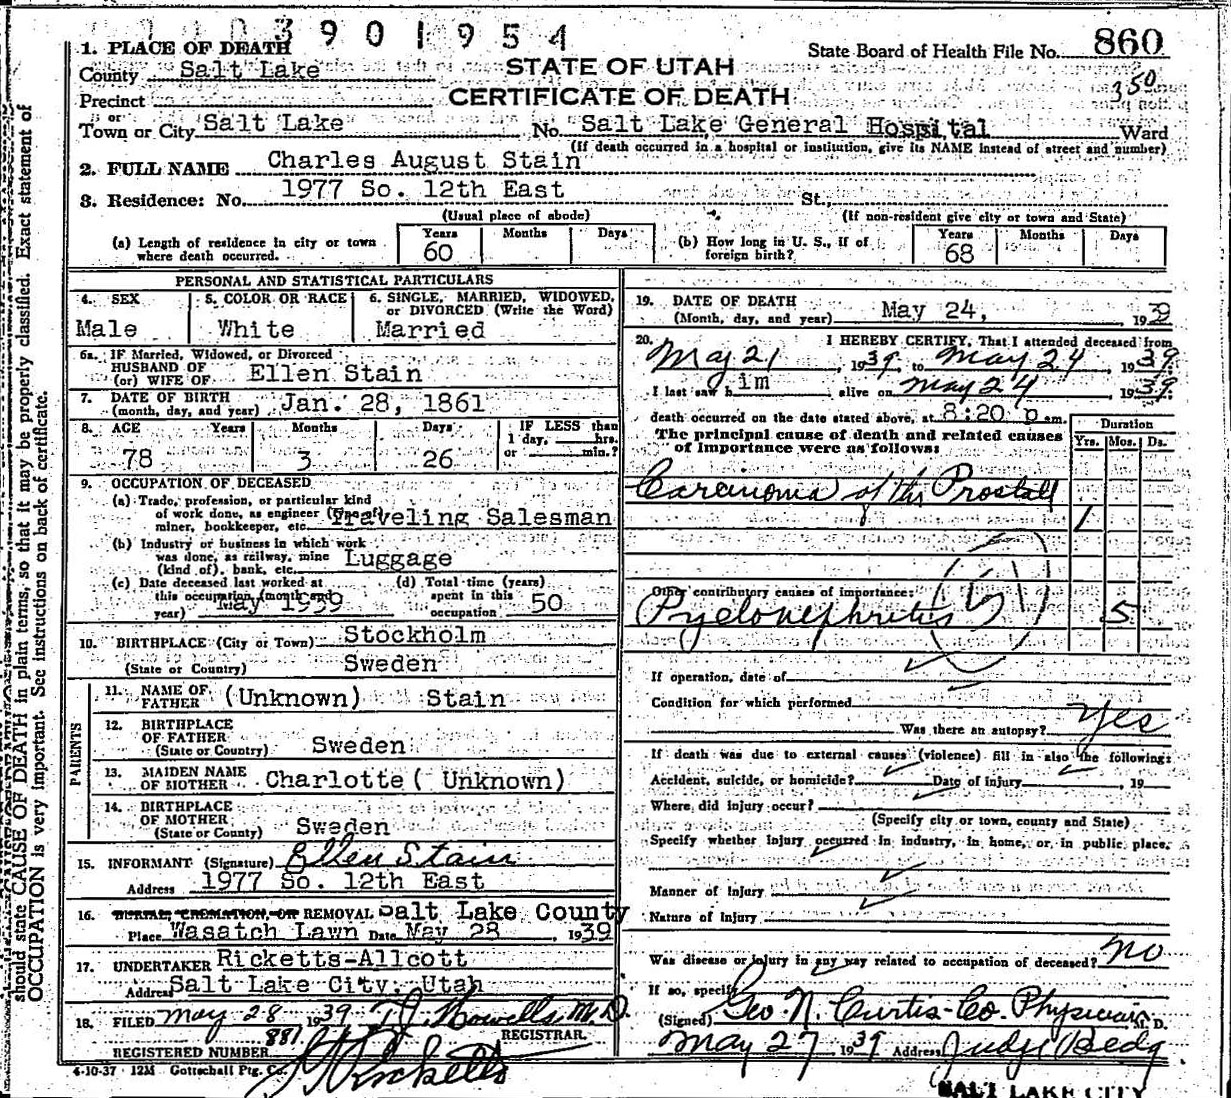 3901954
1. PLACE OF DEATH
State Board of Health File No. 860
County Salt Lake
STATE OF UTAH
350
Precinct
CERTIFICATE OF DEATH
or
Town or City Salt Lake No. Salt Lake General Hospital Ward
(If death occurred in a hospital or institution, give its NAME instead of street and number)
2. FULL NAME Charles August Stain
3. Residence: No. 1977 So. 12th East St.,
(Usual place of abode) (If non-resident give city or town and State)
(a) Length of residence in city or town where death occurred. Years 60 Months Days
(b) How long in U. S., if of foreign birth? Years 68 Months Days
PERSONAL AND STATISTICAL PARTICULARS
4. SEX Male
5. COLOR OR RACE White
6. SINGLE, MARRIED, WIDOWED, or DIVORCED (Write the Word) Married
6a. IF Married, Widowed, or Divorced
HUSBAND OF
(or) WIFE OF Ellen Stain
7. DATE OF BIRTH
(month, day, and year) Jan. 28, 1861
8. AGE Years Months Days IF LESS than
1 day, hrs.
or min.?
78 3 26
9. OCCUPATION OF DECEASED
(a) Trade, profession, or particular kind
of work done, as engineer (Type of)
miner, bookkeeper, etc. Traveling Salesman
(b) Industry or business in which work
was done, as railway, mine
(kind of), bank, etc. Luggage
(c) Date deceased last worked at
this occupation (month and
year) May 1939
(d) Total time (years)
spent in this
occupation 50
10. BIRTHPLACE (City or Town) Stockholm
(State or Country) Sweden
PARENTS
11. NAME OF
FATHER (Unknown) Stain
12. BIRTHPLACE
OF FATHER
(State or Country) Sweden
13. MAIDEN NAME
OF MOTHER Charlotte ( Unknown)
14. BIRTHPLACE
OF MOTHER
(State or County) Sweden
15. INFORMANT (Signature) Ellen Stain
Address 1977 So. 12th East
16. BURIAL, CREMATION, OR REMOVAL Salt Lake County
Place Wasatch Lawn Date May 28, 1939
17. UNDERTAKER Ricketts-Allcott
Address Salt Lake City, Utah
18. FILED May 28 1939 T J Howells, M.D.
REGISTRAR.
REGISTERED NUMBER 881
Ricketts
4-10-37 12M Gottschall Ptg. Co.
19. DATE OF DEATH
(Month, day, and year) May 24, 1939
20. I HEREBY CERTIFY, That I attended deceased from
May 21, 1939, to May 24 1939.
I last saw him alive on May 24 1939.
death occurred on the date stated above, at 8:20 p m.
The principal cause of death and related causes
of importance were as follows:
Duration
Yrs. Mos. Ds.
Carcinoma of the Prostate
1
Other contributory causes of importance:
Pyelonephritis 5
If operation, date of
Condition for which performed
Was there an autopsy? Yes
If death was due to external causes (violence) fill in also the following:
Accident, suicide, or homicide? Date of injury , 19
Where did injury occur?
(Specify city or town, county and State)
Specify whether injury occurred in industry, in home, or in public place.
Manner of Injury
Nature of Injury
Was disease or injury in any way related to occupation of deceased? No
If so, specify
(Signed) Geo. N. Curtis-Co. Physician M. D.
May 27 1939 Address Judge Bedg
SALT LAKE CITY
should state CAUSE OF DEATH in plain terms, so that it may be properly classified. Exact statement of
OCCUPATION is very important. See instructions on back of certificate.